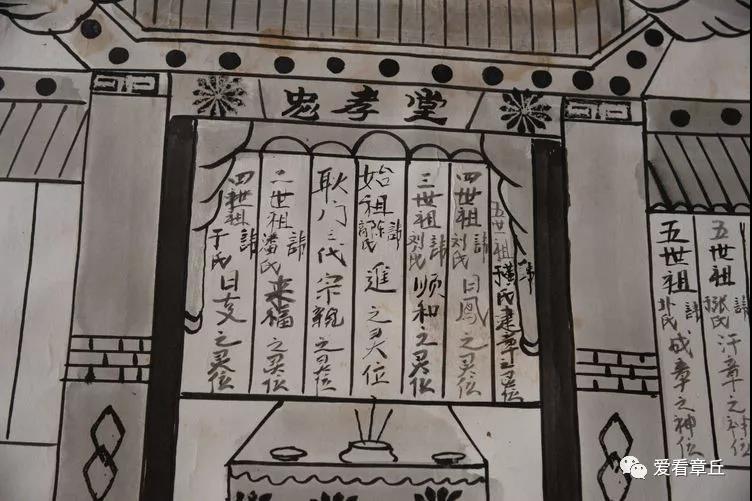 忠孝堂
五世祖諱氏汗章之神位
五世祖諱氏成章之神位
五世祖諱氏建章之灵位
四世祖諱刘氏日鳳之灵位
三世祖諱刘氏顺和之灵位
始祖諱氏進之灵位
耿门三代宗親之灵位
二世祖諱潘氏来福之灵位
四世祖諱于氏日之灵位
爱看章丘